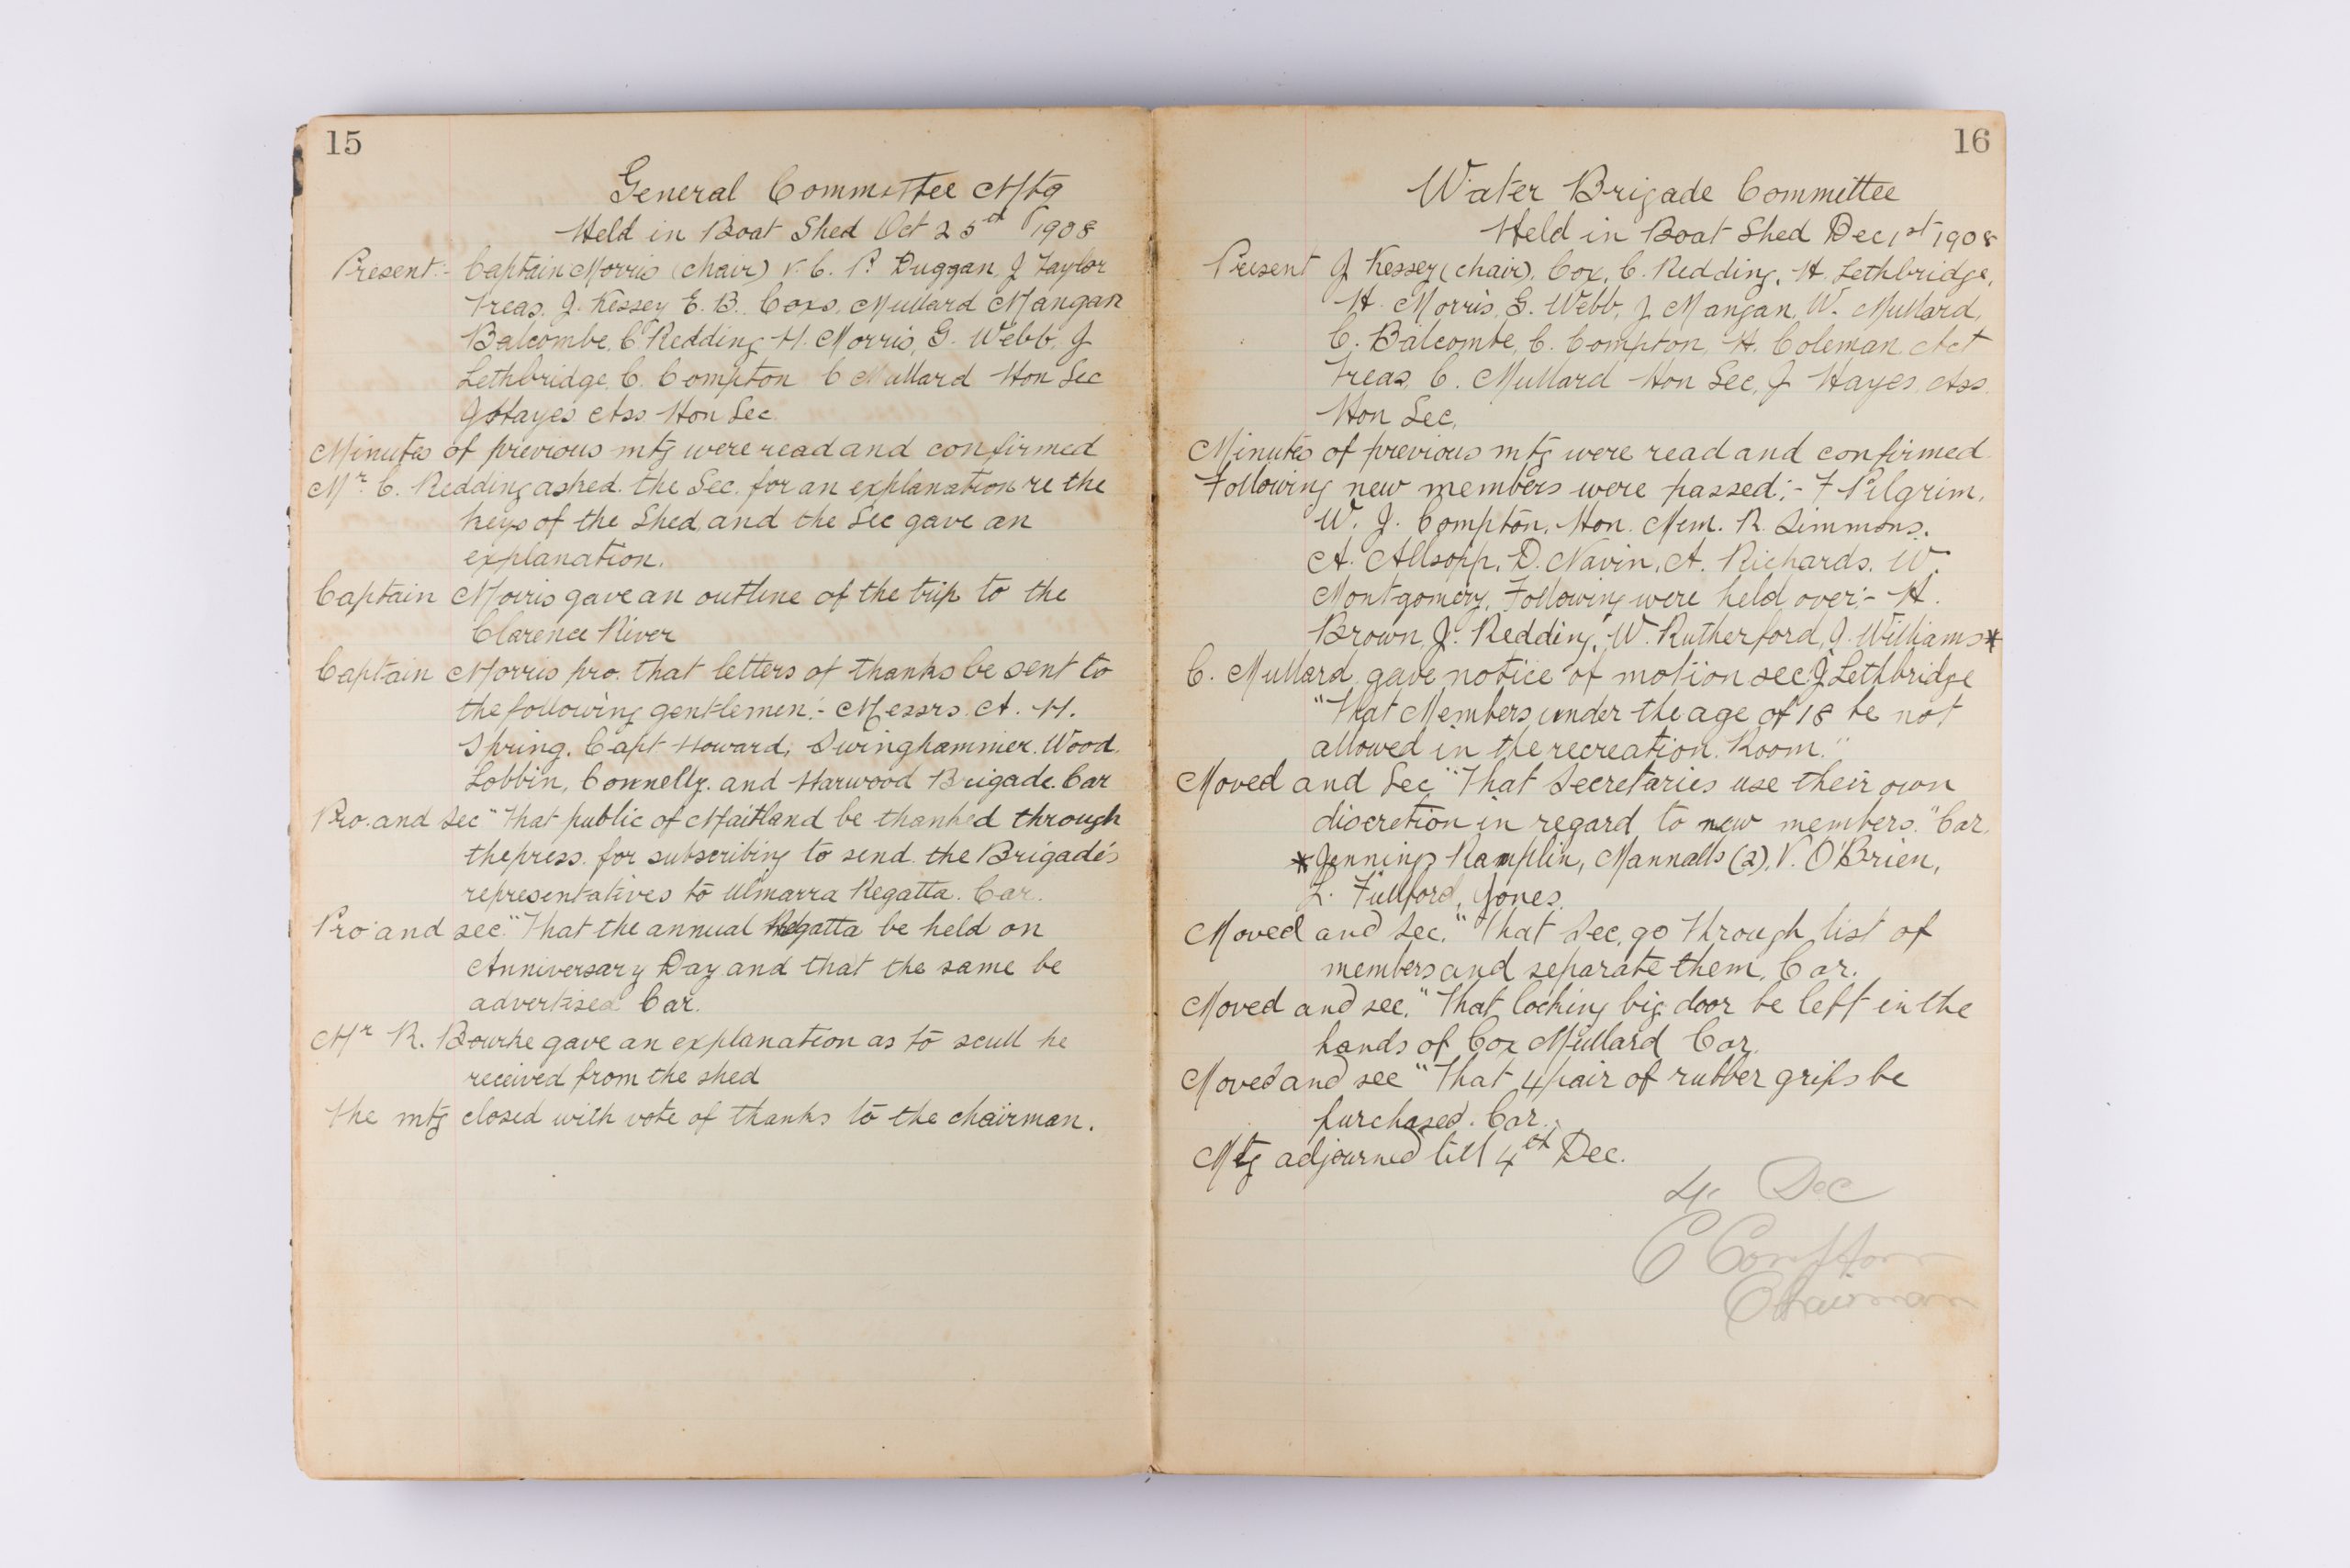 15
General Committee Mtg
Held in Boat Shed Oct 25th 1908
Present:- Captain Morris (chair) V. C. P. Duggan, J Taylor
Treas. J. Kessey E. B. Coxs, Mullard Mangan
Balcombe, C Redding H. Morris, G. Webb, J
Lethbridge C. Compton C Mullard Hon Sec
J Hayes Ass Hon Sec
Minutes of previous mtg were read and confirmed
Mr. C. Redding asked the Sec. for an explanation re the
keys of the Shed, and the Sec gave an
explanation.
Captain Morris gave an outline of the trip to the
Clarence River
Captain Morris pro. that letters of thanks be sent to
the following gentlemen:- Messrs. A. H.
Spring, Capt Howard, Swinghammer, Wood,
Lobbin, Connelly, and Harwood Brigade. Car
Pro. and Sec "That public of Maitland be thanked through
the press. for subscribing to send the Brigade's
representatives to Ulmarra Regatta. Car.
Pro and sec. "That the annual Regatta be held on
Anniversary Day and that the same be
advertised Car.
Mr R. Bourke gave an explanation as to scull he
received from the shed
The mtg closed with vote of thanks to the chairman.
16
Water Brigade Committee
Held in Boat Shed Dec 1st 1908
Present J Kessey (chair), Cox, C. Redding, H. Lethbridge,
H. Morris, G. Webb, J Mangan, W. Mullard,
C. Balcombe, C. Compton, H. Coleman Act
Treas. C. Mullard Hon Sec, J Hayes Ass.
Hon Sec.
Minutes of previous mtg were read and confirmed.
Following new members were passed:- F Pilgrim,
W. J. Compton, Hon. Mem. R. Simmons.
A. Allsopp, D. Navin, A. Richards, W.
Montgomery. Following were held over:- H.
Brown, J. Redding, W. Rutherford, J. Williams*
C. Mullard gave notice of motion sec. J Lethbridge
"That Members under the age of 18 be not
allowed in the recreation Room."
Moved and Sec "That Secretaries use their own
discretion in regard to new members." Car.
*Jennings Ramplin, Mannalls (2), V. O'Brien,
L. Fullford, Jones.
Moved and Sec. "That Sec, go through list of
members and separate them. Car.
Moved and sec. "That locking big door be left in the
hands of Cox Mullard Car.
Moved and sec "That 4 pair of rubber grips be
purchased. Car.
Mtg adjourned till 4th Dec.
4. Dec
C Compton
Chairman